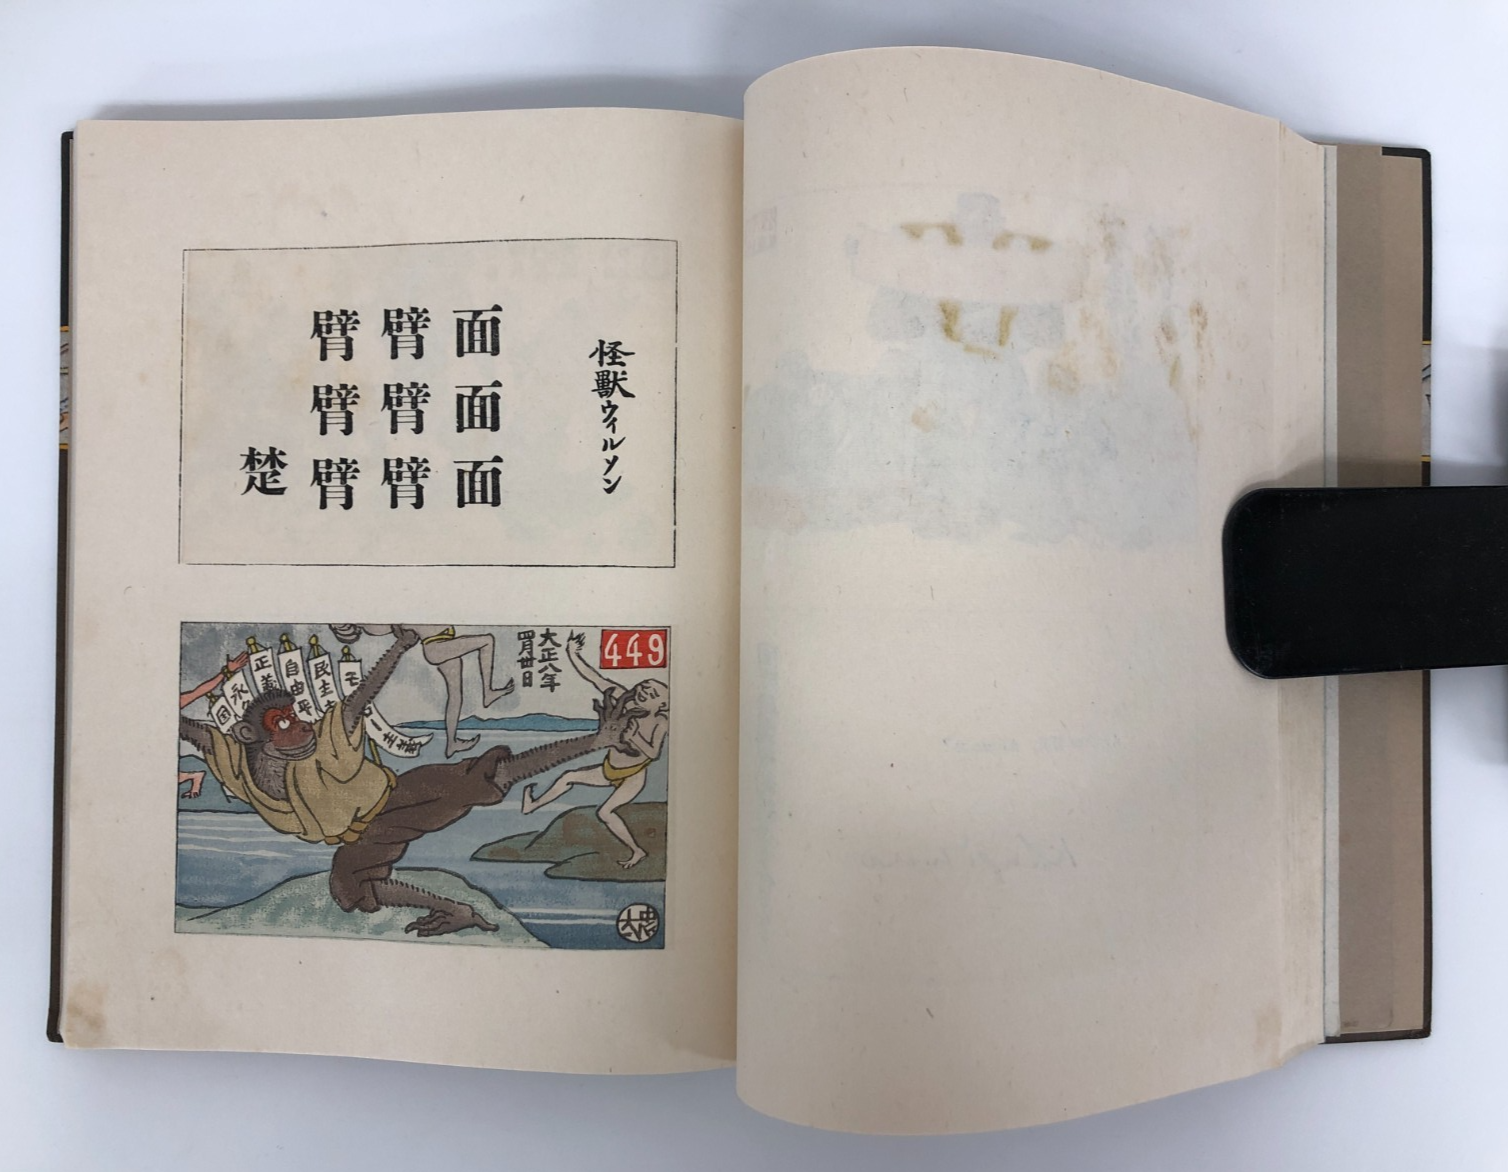 怪獸ウィルソン
面面面
臂臂臂
臂臂臂
楚
449
大正八年
四月卅日
モ
ー主義
民主主
自由平
正義
永
国